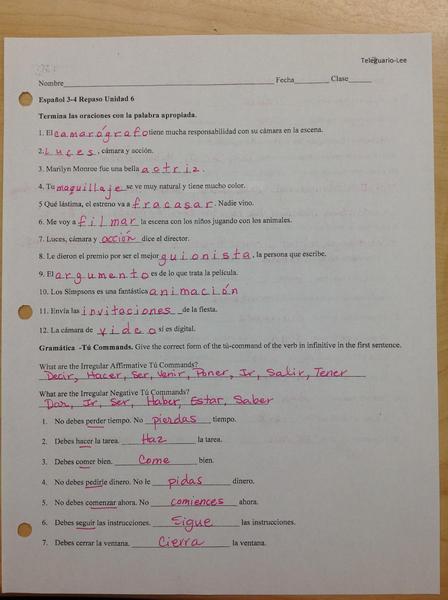 Teleguario-Lee
Nombre Fecha Clase
Español 3-4 Repaso Unidad 6
Termina las oraciones con la palabra apropiada.
1. El camarógrafo tiene mucha responsabilidad con su cámara en la escena.
2. Luces, cámara y acción.
3. Marilyn Monroe fue una bella actriz.
4. Tu maquillaje se ve muy natural y tiene mucho color.
5 Qué lástima, el estreno va a fracasar. Nadie vino.
6. Me voy a filmar la escena con los niños jugando con los animales.
7. Luces, cámara y acción dice el director.
8. Le dieron el premio por ser el mejor guionista, la persona que escribe.
9. El argumento es de lo que trata la película.
10. Los Simpsons es una fantástica animación
11. Envía las invitaciones de la fiesta.
12. La cámara de video sí es digital.
Gramática -Tú Commands. Give the correct form of the tú-command of the verb in infinitive in the first sentence.
What are the Irregular Affirmative Tú Commands?
Decir, Hacer, Ser, Venir, Poner, Ir, Salir, Tener
What are the Irregular Negative Tú Commands?
Dar, Ir, Ser, Haber, Estar, Saber
1. No debes perder tiempo. No pierdas tiempo.
2. Debes hacer la tarea. Haz la tarea.
3. Debes comer bien. Come bien.
4. No debes pedirle dinero. No le pidas dinero.
5. No debes comenzar ahora. No comiences ahora.
6. Debes seguir las instrucciones. Sigue las instrucciones.
7. Debes cerrar la ventana. Cierra la ventana.